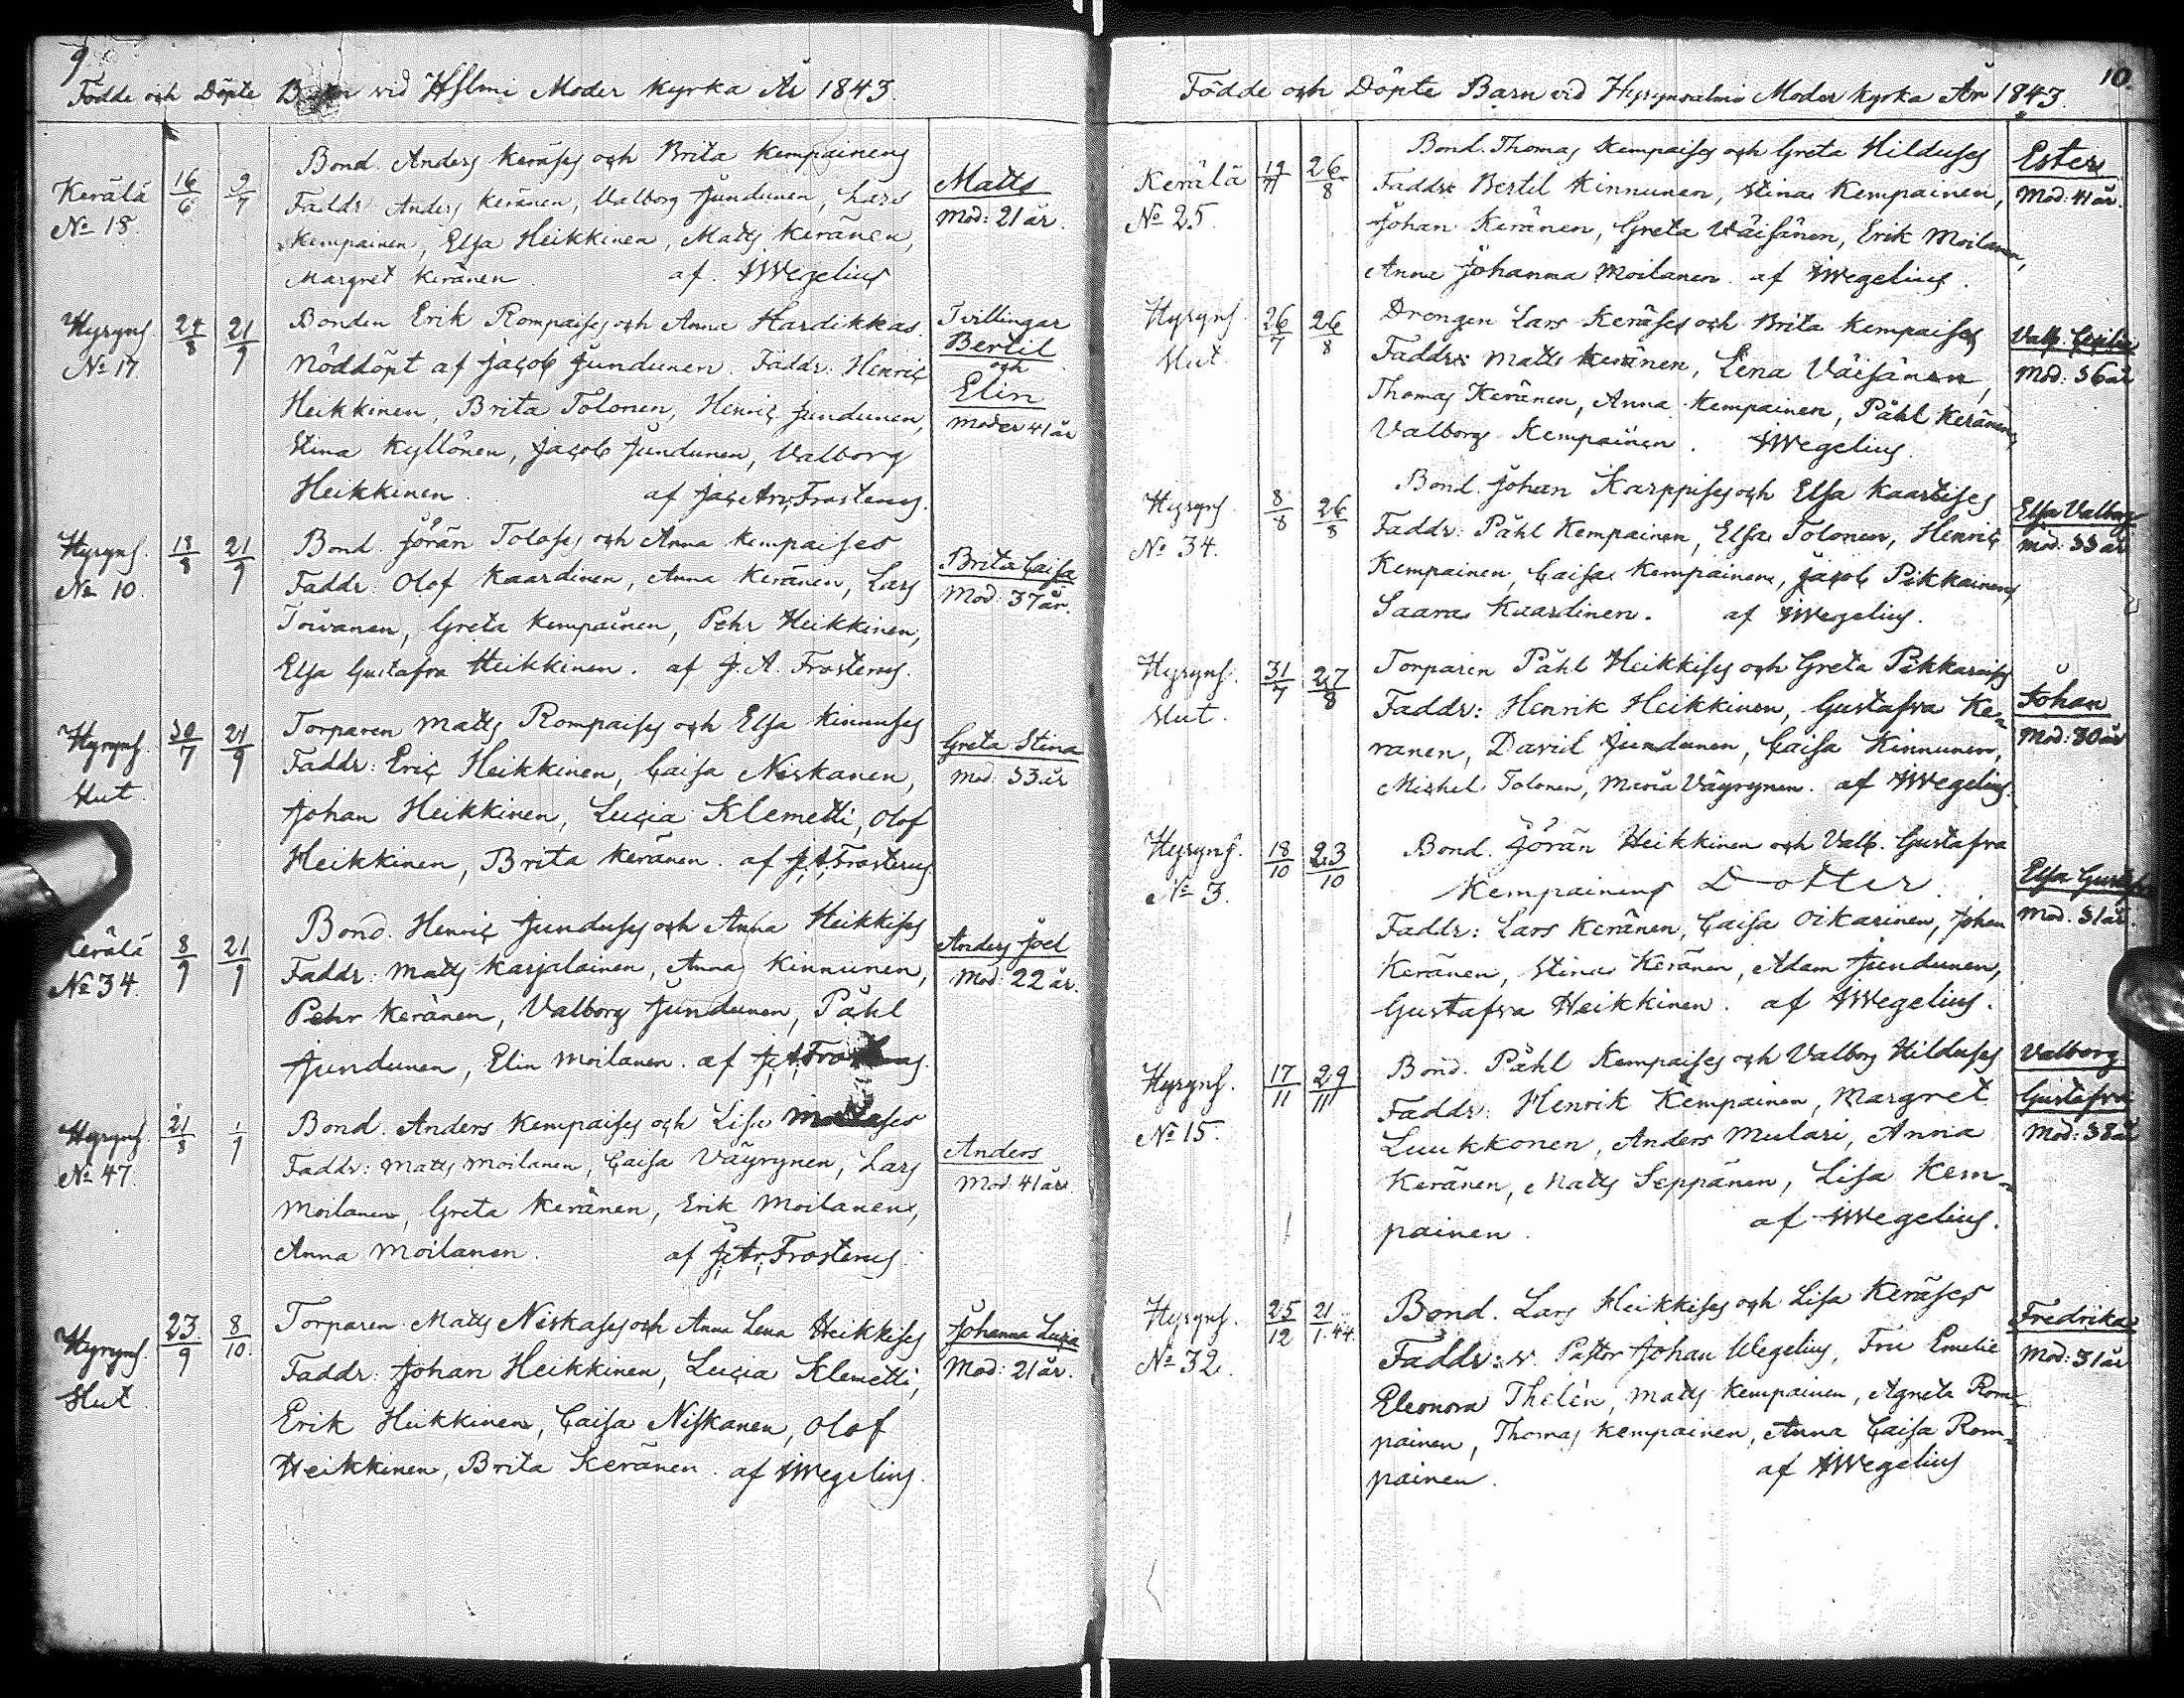 9
Födde och Döpte Barn vid HSlmi Moder Kyrka År 1843.
Kerälä
No 18.
16/6
9/7
Bond. Anders Keräses och Brita Kempainens
Faddr: Anders Keränen, Valborg Jundunen, Lars
Kempainen, Elsa Heikkinen, Matts Keränen,
Margret Keränen. af. AWegelius
Matts
Mod: 21 år.
Hyryns.
No 17.
24/8
21/9
Bonden Erik Rompaises och Anna Hardikkas.
Nöddöpt af Jacob Jundunen. Faddr: Henric
Heikkinen, Brita Tolonen, Henric Jundunen,
Stina Kyllönen, Jacob Jundunen, Valborg
Heikkinen. af Jac. Arv. Frosterus.
Tvillingar
Bertil
och
Elin
Moder 41 år
Hyryns.
No 10.
21/9
Bond. Jöran Toloses och Anna Kempaises
Faddr: Olof Kaardinen, Anna Keränen, Lars
Toivanen, Greta Kempainen, Pehr Heikkinen,
Elsa Gustafva Heikkinen. af J. A. Frosterus.
Brita Caisa
Mod: 37 år.
Hyryns.
Hut.
30/7
21/9
Torparen Matts Rompaises och Elsa Kinnuses
Faddr: Eric Heikkinen, Caisa Niskanen,
Johan Heikkinen, Lucia Klemetti, Olof
Heikkinen, Brita Keränen. af J. A. Frosterus
Greta Stina
Mod: 33 år
Kerälä
No 34.
8/9
21/9
Bond. Henric Junduses och Anna Heikkises
Faddr: Matts Karjalainen, Anna Kinnunen,
Pehr Keränen, Valborg Jundunen, Påhl
Jundunen, Elin Moilanen. af J. A. Frosterus.
Anders Joel
Mod: 22 år.
Hyryns.
No 47.
21/8
Bond. Anders Kempaises och Lisa
Faddr: Matts Moilanen, Caisa Väyrynen, Lars
Moilanen, Greta Keränen, Erik Moilanen,
Anna Moilanen. af J. Arv. Frosterus.
Anders
Mod. 41 år
Hyryns.
Hut.
23/9
8/10.
Torparen Matts Niskases och Anna Lena Heikkises
Faddr: Johan Heikkinen, Lucia Klemetti,
Erik Heikkinen, Caisa Niskanen, Olof
Heikkinen, Brita Keränen. af AWegelius.
Johanna Lucia
Mod: 21 år.
10.
Födde och Döpte Barn vid Hyrynsalmi Moder Kyrka År 1843.
Kerälä
No 25.
26/8
Bond. Thomas Kempaises och Greta Hilduses
Faddr: Bertil Kinnunen, Stina Kempainen,
Johan Keränen, Greta Väisänen, Erik Moilanen,
Anna Johanna Moilanen. af AWegelius.
Ester
Mod: 41 år.
Hyryns.
Hut
26/7
26/8
Drengen Lars Keräses och Brita Kempaises
Faddr: Matts Keränen, Lena Väisänen,
Thomas Keränen, Anna Kempainen, Påhl Keränen,
Valborg Kempainen. AWegelius.
Valb. Cecilia
Mod: 36 år
Hyryns.
No 34.
8/8
26/8
Bond. Johan Karppises och Elsa Kaartises
Faddr: Påhl Kempainen, Elsa Tolonen, Henric
Kempainen, Caisa Kempainen, Jacob Pikkainens
Saara Kaardinen. af AWegelius.
Elsa Valborg
Mod: 33 år
Hyryns.
Hut.
31/7
27/8
Torparen Påhl Heikkises och Greta Pikkaraises
Faddr: Henrik Heikkinen, Gustafva Ke-
ränen, David Jundunen, Caisa Kinnunen,
Mickel Tolonen, Maria Väyrynen. af AWegelius.
Johan
Mod: 30 år
Hyryns.
No 3.
18/10
23/10
Bond. Jöran Heikkinen och Valb. Gustafva
Kempainens Dotter.
Faddr: Lars Keränen, Caisa Oikarinen, Johan
Keränen, Stina Keränen, Adam Jundunen,
Gustafva Heikkinen. af AWegelius.
Elsa Gustafva
Mod. 31 år.
Hyryns.
No 15.
17/11
29/11
Bond. Påhl Kempaises och Valborg Hilduses
Faddr: Henrik Kempainen, Margret
Luukkonen, Anders Mulari, Anna
Keränen, Matts Seppänen, Lisa Kem-
painen. af AWegelius.
Valborg
Gustafva
Mod: 38 år
Hyryns.
No 32.
25/12
21/1.44.
Bond. Lars Heikkises och Lisa Keräses
Faddr: v. Pastor Johan Wegelius, Fru Emelie
Eleonora Thelén, Matts Kempainen, Agneta Rom-
painen, Thomas Kempainen, Anna Caisa Rom-
painen. af AWegelius
Fredrika
Mod: 31 år